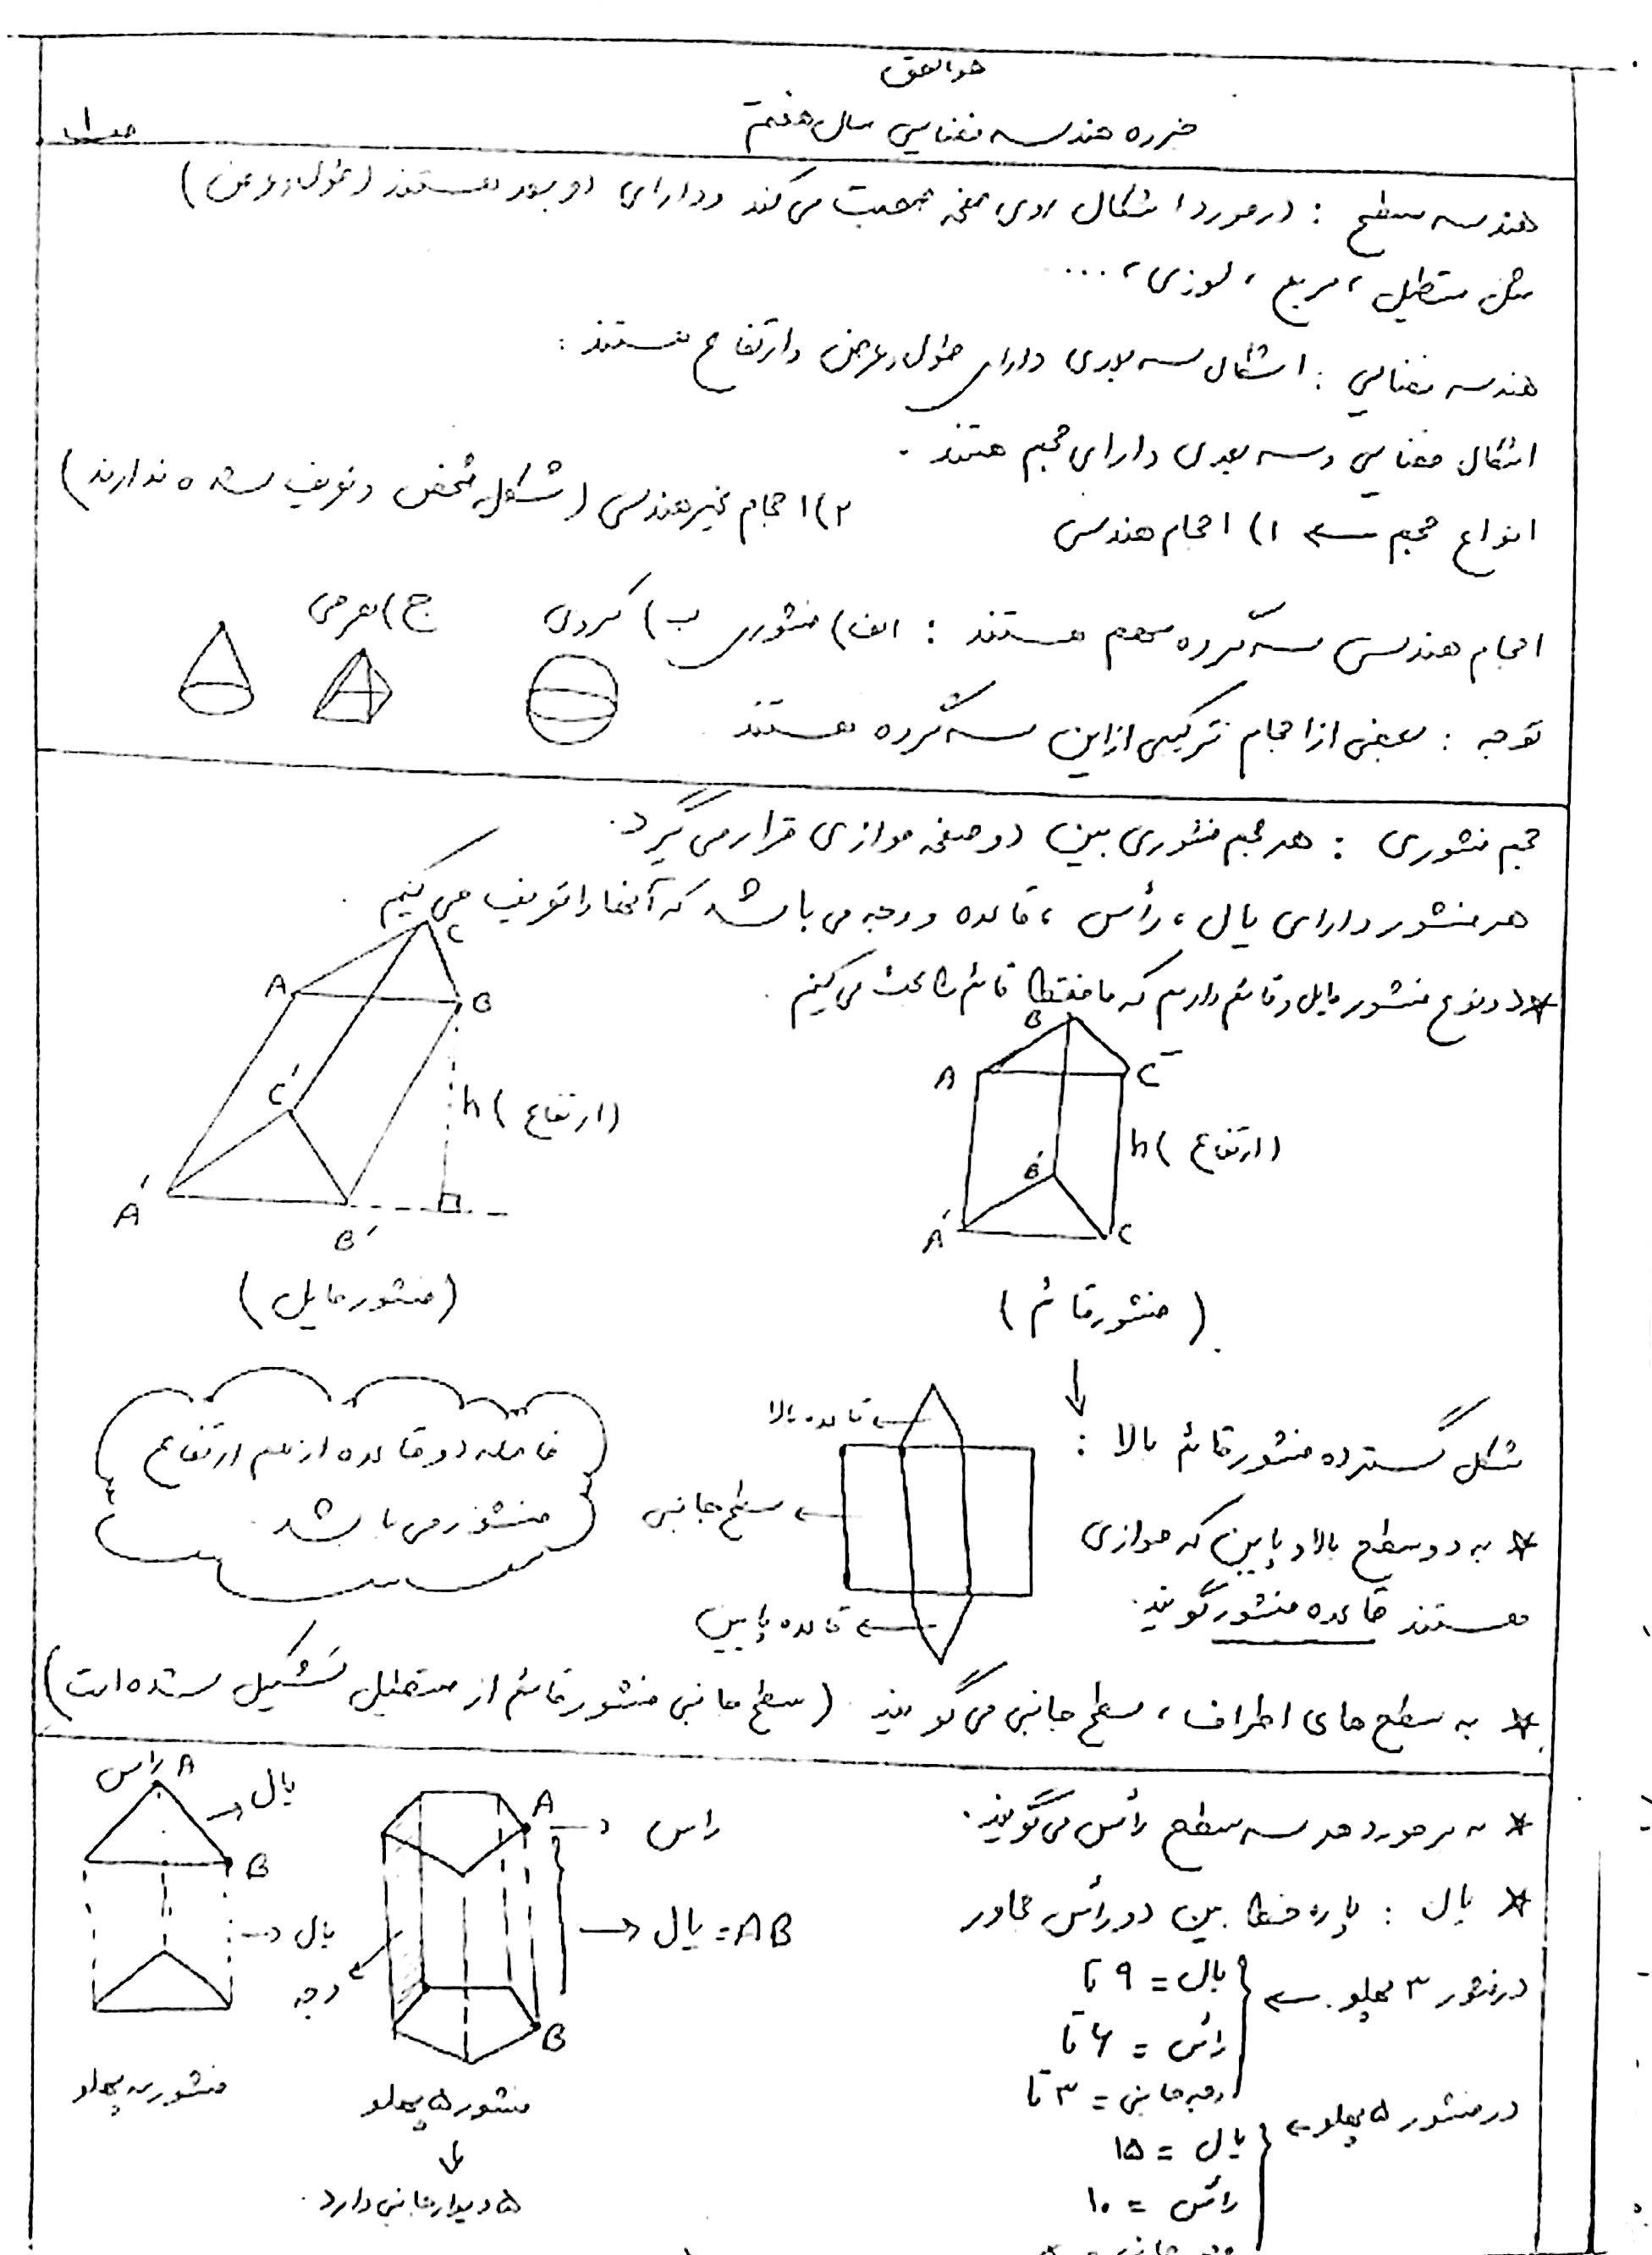 هوالحق
جزوه هندسه فضایی سال هفتم
صد ۱
هندسه سطح : درمورد اشکال روی صفحه صحبت می کند و دارای دو بعد هستند (طول و عرض)
مثل مستطیل ، مربع ، لوزی ، ...
هندسه فضایی : اشکال سه بعدی دارای طول و عرض و ارتفاع هستند :
اشکال فضایی و سه بعدی دارای حجم هستند .
انواع حجم ← ۱) احجام هندسی ۲) احجام غیرهندسی (شکل مشخص و تعریف شده ندارند)
احجام هندسی سه گروه مهم هستند : الف) منشوری ب) کروی ج) هرمی
توجه : بعضی از احجام ترکیبی از این سه گروه هستند
حجم منشوری : هر حجم منشوری بین دو صفحه موازی قرار می گیرد.
هر منشور دارای یال ، رأس ، قاعده و وجه می باشد که آنها را تعریف می کنیم .
* دو نوع منشور مایل و قائم داریم که ما فقط قائم را بحث می کنیم .
C
A
B
C'
h (ارتفاع)
A'
B'
(منشور مایل)
B
A
C
h (ارتفاع)
B'
A'
C
(منشور قائم)
↓
شکل گسترده منشور قائم بالا :
قاعده بالا
سطح جانبی
قاعده پایین
فاصله دو قاعده از هم ارتفاع
منشور می باشد .
* به دو سطح بالا و پایین که موازی
هستند قاعده منشور گویند.
* به سطح های اطراف ، سطح جانبی می گویند . (سطح جانبی منشور قائم از مستطیل تشکیل شده است)
* به برخورد هر سه سطح رأس می گویند.
* یال : پاره خط بین دو رأس مجاور
در منشور ۳ پهلو ←
یال = ۹ تا
رأس = ۶ تا
وجه جانبی = ۳ تا
در منشور ۵ پهلو ←
یال = ۱۵
رأس = ۱۰
A
راس
یال = AB
وجه
B
منشور ۵ پهلو
↓
۵ دیوار جانبی دارد .
راس A
یال
B
یال
منشور سه پهلو